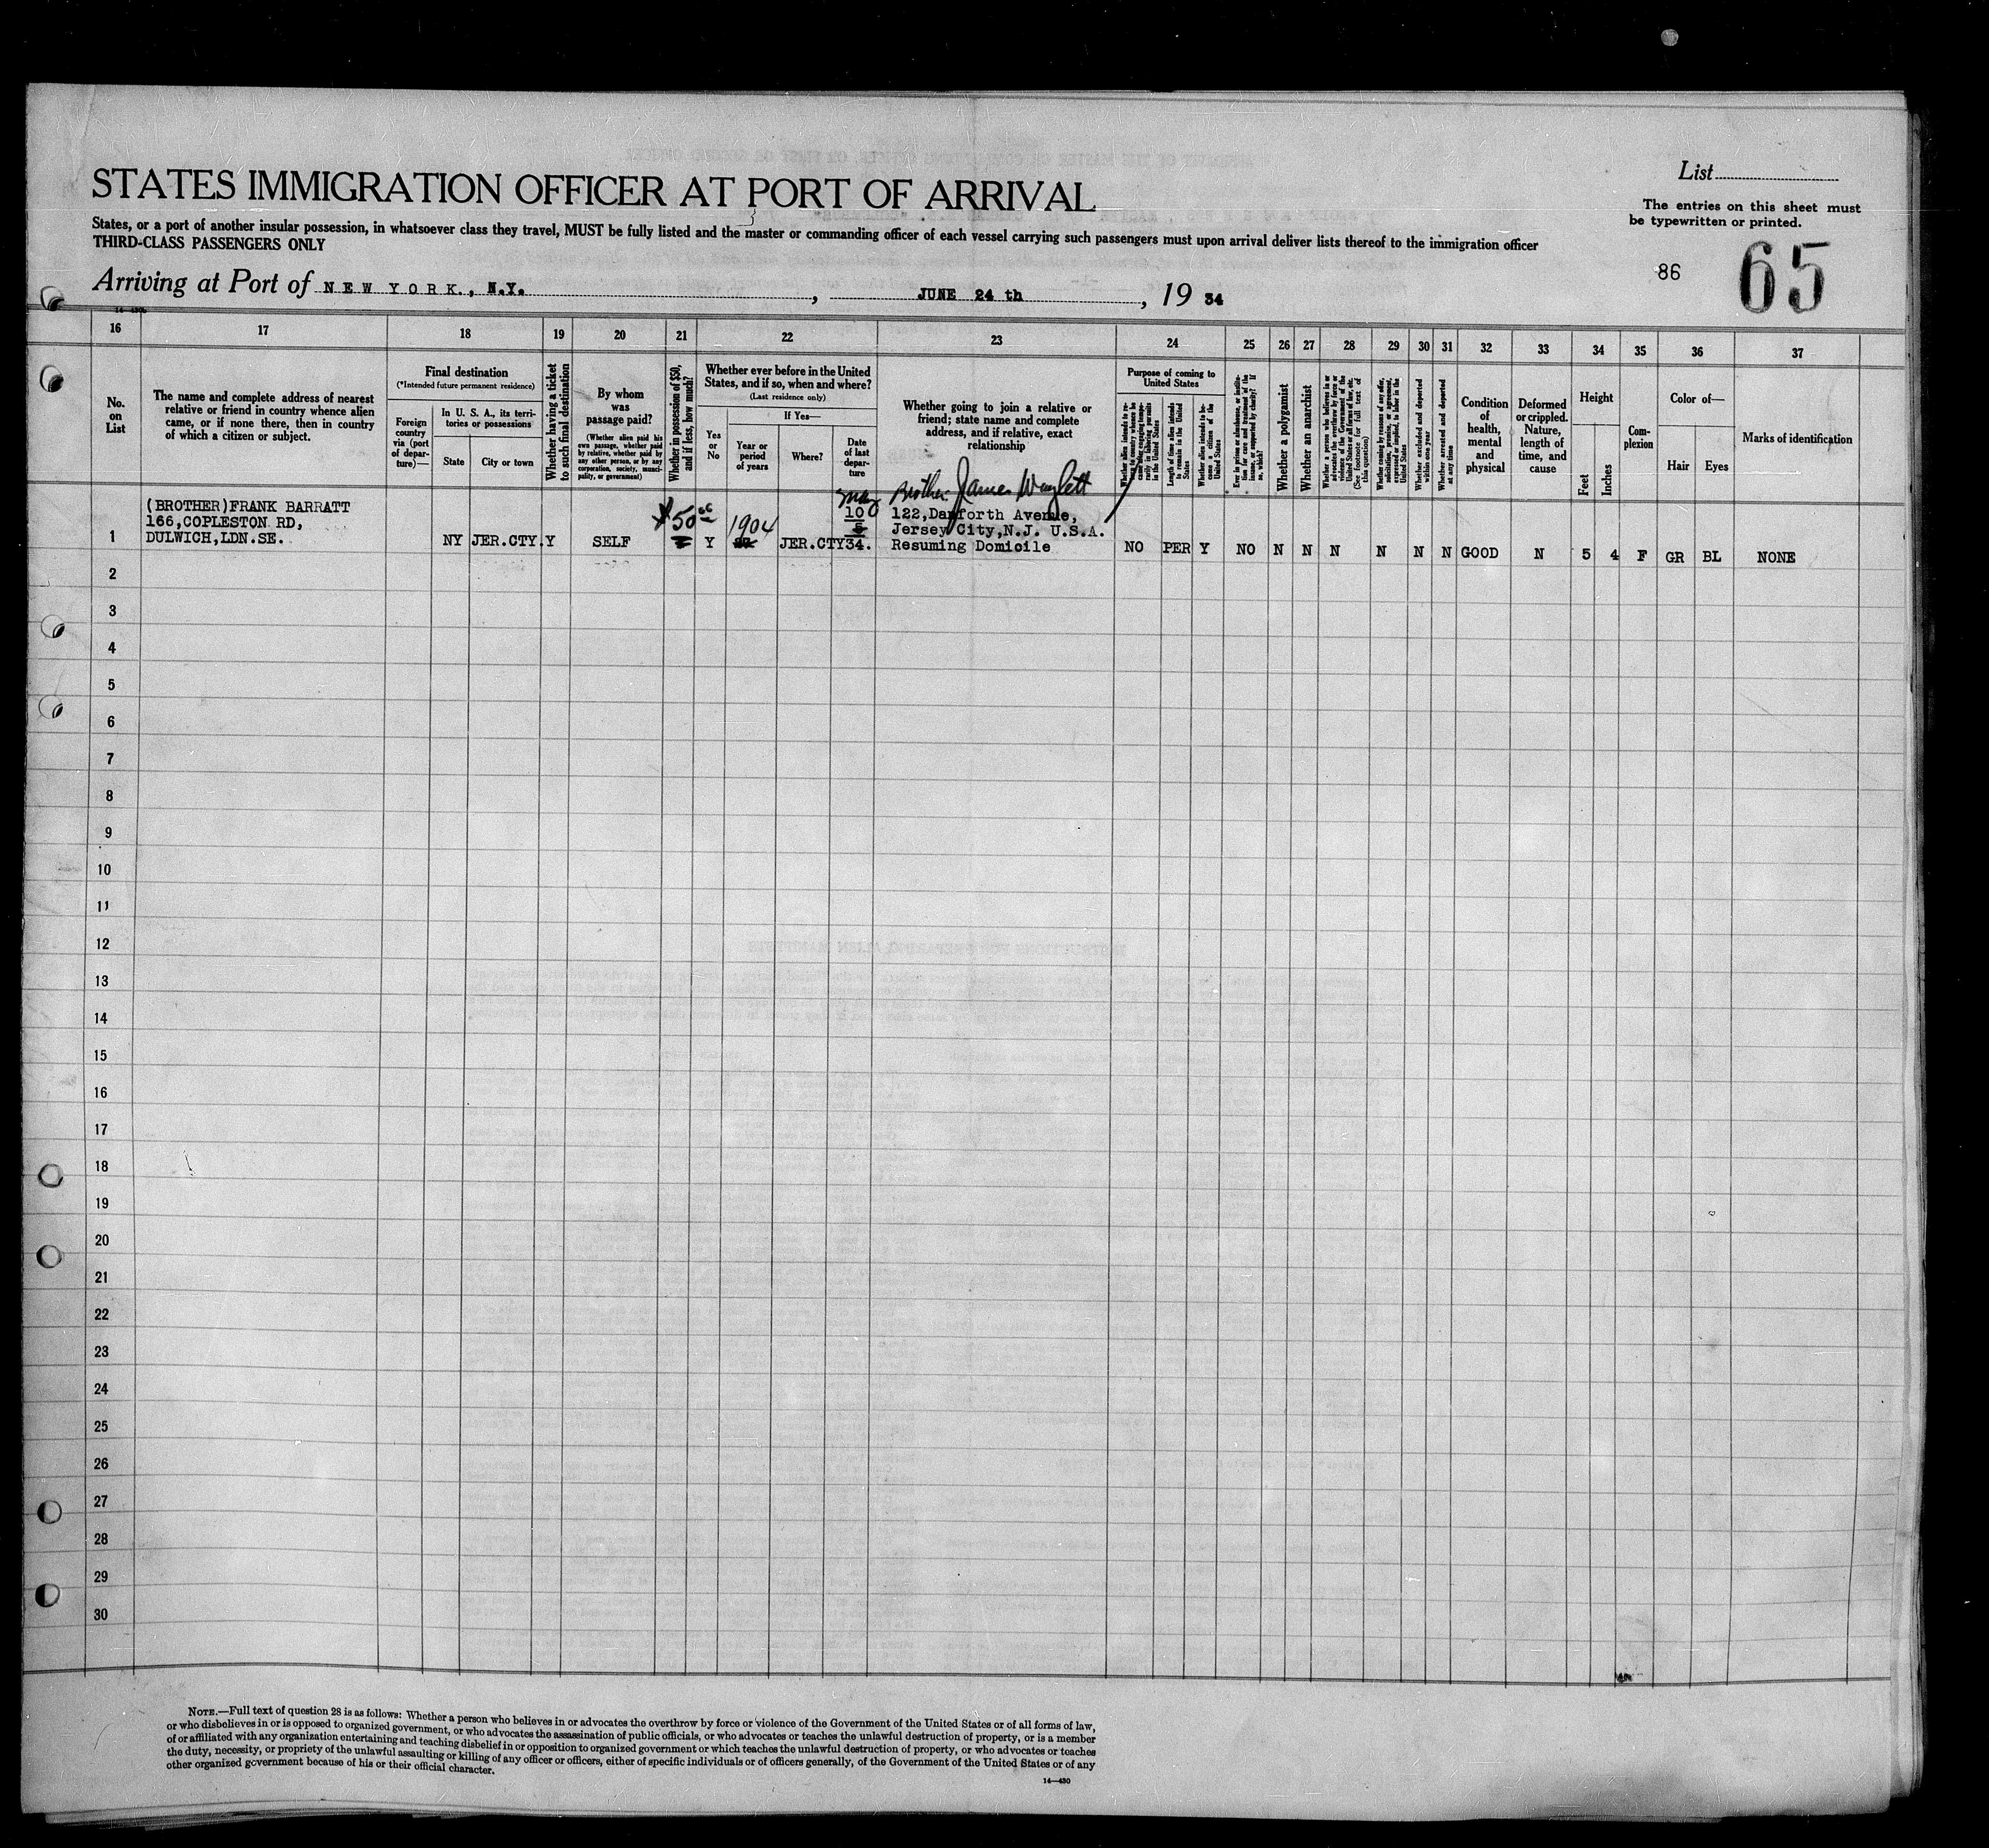 STATES IMMIGRATION OFFICER AT PORT OF ARRIVAL
List
The entries on this sheet must
be typewritten or printed.
States, or a port of another insular possession, in whatsoever class they travel, MUST be fully listed and the master or commanding officer of each vessel carrying such passengers must upon arrival deliver lists thereof to the immigration officer
THIRD-CLASS PASSENGERS ONLY
86
65
Arriving at Port of NEW YORK., N.Y. , JUNE 24 th , 19 34
16 17 18 19 20 21 22 23 24 25 26 27 28 29 30 31 32 33 34 35 36 37
No.
on
List
The name and complete address of nearest
relative or friend in country whence alien
came, or if none there, then in country
of which a citizen or subject.
Final destination
(*Intended future permanent residence)
Foreign
country
via (port
of depar-
ture)—
In U. S. A., its terri-
tories or possessions
State
City or town
Whether having a ticket
to such final destination
By whom
was
passage paid?
(Whether alien paid his
own passage, whether paid
by relative, whether paid by
any other person, or by any
corporation, society, munici-
pality, or government)
Whether in possession of $50,
and if less, how much?
Whether ever before in the United
States, and if so, when and where?
(Last residence only)
If Yes—
Yes
or
No
Year or
period
of years
Where?
Date
of last
depar-
ture
Whether going to join a relative or
friend; state name and complete
address, and if relative, exact
relationship
Purpose of coming to
United States
Length of time alien intends
to remain in the United
States
Whether alien intends to be-
come a citizen of the
United States
Whether a polygamist
Whether an anarchist
Whether a person who believes in or
advocates the overthrow by force or
violence of the Government of the
United States or all forms of law, etc.
(See footnote for full text of
this question)
Whether coming by reason of any offer,
solicitation, promise, or agreement,
expressed or implied, to labor in the
United States
Whether excluded and deported
within one year
Whether arrested and deported
at any time
Condition
of
health,
mental
and
physical
Deformed
or crippled.
Nature,
length of
time, and
cause
Height
Feet
Inches
Com-
plexion
Color of—
Hair
Eyes
Marks of identification
Brother James
(BROTHER)FRANK BARRATT
166,COPLESTON RD,
DULWICH,LDN.SE.
1 NY JER.CTY. Y SELF $50 Y 1904 JER.CTY
May
10
34.
122,Danforth Avenue,
Jersey City,N.J. U.S.A.
Resuming Domicile
NO PER Y NO N N N N N N GOOD N 5 4 F GR BL NONE
2
3
4
5
6
7
8
9
10
11
12
13
14
15
16
17
18
19
20
21
22
23
24
25
26
27
28
29
30
NOTE.—Full text of question 28 is as follows: Whether a person who believes in or advocates the overthrow by force or violence of the Government of the United States or of all forms of law,
or who disbelieves in or is opposed to organized government, or who advocates the assassination of public officials, or who advocates or teaches the unlawful destruction of property, or is a member
of or affiliated with any organization entertaining and teaching disbelief in or opposition to organized government or which teaches the unlawful destruction of property, or who advocates or teaches
the duty, necessity, or propriety of the unlawful assaulting or killing of any officer or officers, either of specific individuals or of officers generally, of the Government of the United States or of any
other organized government because of his or their official character.
14—430